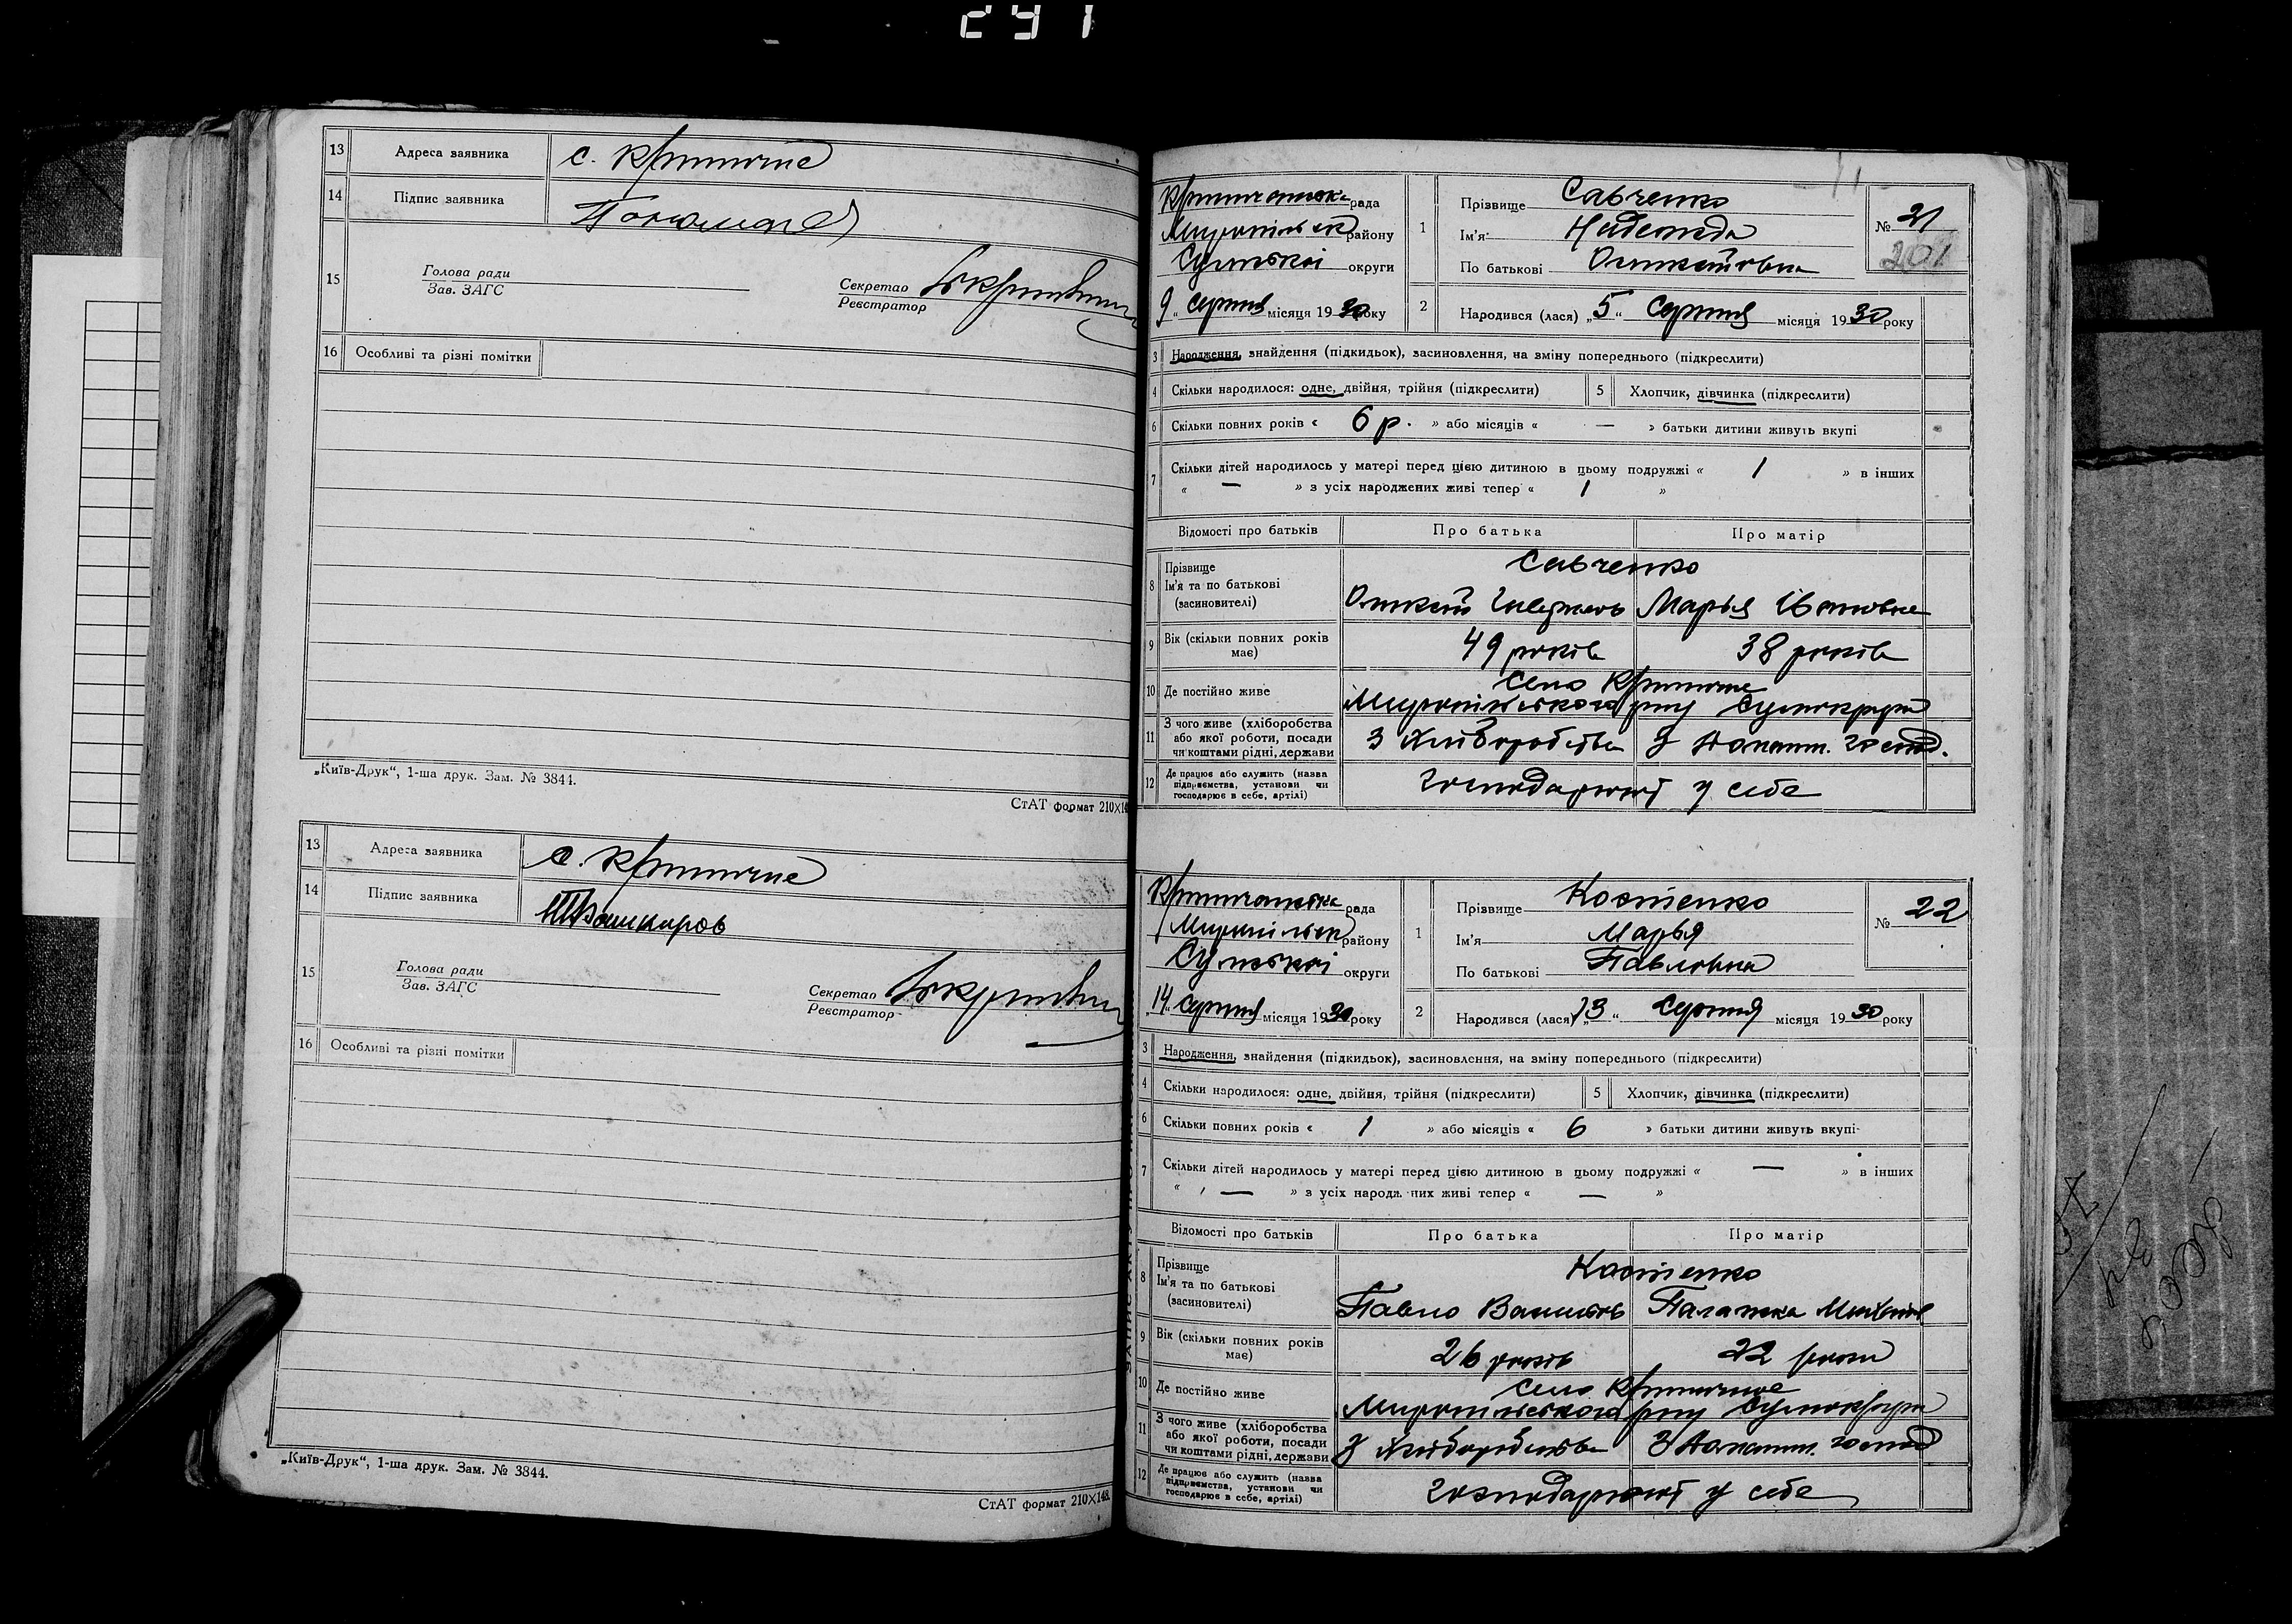 291
13 Адреса заявника с. Криничне
14 Підпис заявника
15 Голова ради
Зав. ЗАГС
Секретар
Реєстратор
16 Особливі та різні помітки
„Київ-Друк“, 1-ша друк. Зам. № 3844.
СтАТ формат 210×14
13 Адреса заявника с. Криничне
14 Підпис заявника
15 Голова ради
Зав. ЗАГС
Секретар
Реєстратор
16 Особливі та різні помітки
„Київ-Друк“, 1-ша друк. Зам. № 3844.
СтАТ формат 210×148.
рада
району
Сумської округи
9 серпня місяця 1930 року
1 Прізвище Савченко
Ім'я Надежда
По батькові
№ 21
201
2 Народився (лася) „5“ Серпня місяця 1930 року
3 Народження, знайдення (підкидьок), засиновлення, на зміну попереднього (підкреслити)
4 Скільки народилося: одне, двійня, трійня (підкреслити) 5 Хлопчик, дівчинка (підкреслити)
6 Скільки повних років « 6 р. » або місяців « — » батьки дитини живуть вкупі
7 Скільки дітей народилось у матері перед цією дитиною в цьому подружжі « 1 » в інших
« — » з усіх народжених живі тепер « 1 »
Відомості про батьків Про батька Про матір
8 Прізвище Савченко
Ім'я та по батькові
(засиновителі) Марья Івановна
9 Вік (скільки повних років
має) 49 років 38 років
10 Де постійно живе село Криничне
Миропільського р-ну
11 З чого живе (хліборобства
або якої роботи, посади
чи коштами рідні, держави
З хліборобства З домашн. господ.
12 Де працює або служить (назва
підприємства, установи чи
господарює в себе, артілі)
господарюють у себе
рада
району
Сумської округи
„14“ серпня місяця 1930 року
1 Прізвище Костенко
Ім'я Марья
По батькові Павловна
№ 22
2 Народився (лася) „13“ Серпня місяця 1930 року
3 Народження, знайдення (підкидьок), засиновлення, на зміну попереднього (підкреслити)
4 Скільки народилося: одне, двійня, трійня (підкреслити) 5 Хлопчик, дівчинка (підкреслити)
6 Скільки повних років « 1 » або місяців « 6 » батьки дитини живуть вкупі
7 Скільки дітей народилось у матері перед цією дитиною в цьому подружжі « — » в інших
« — » з усіх народжених живі тепер « — »
Відомості про батьків Про батька Про матір
8 Прізвище Костенко
Ім'я та по батькові
(засиновителі) Павло
9 Вік (скільки повних років
має) 26 років 22 роки
10 Де постійно живе село Криничне
Миропільського р-ну
11 З чого живе (хліборобства
або якої роботи, посади
чи коштами рідні, держави
З хліборобства З домашн. господ
12 Де працює або служить (назва
підприємства, установи чи
господарює в себе, артілі)
господарюють у себе